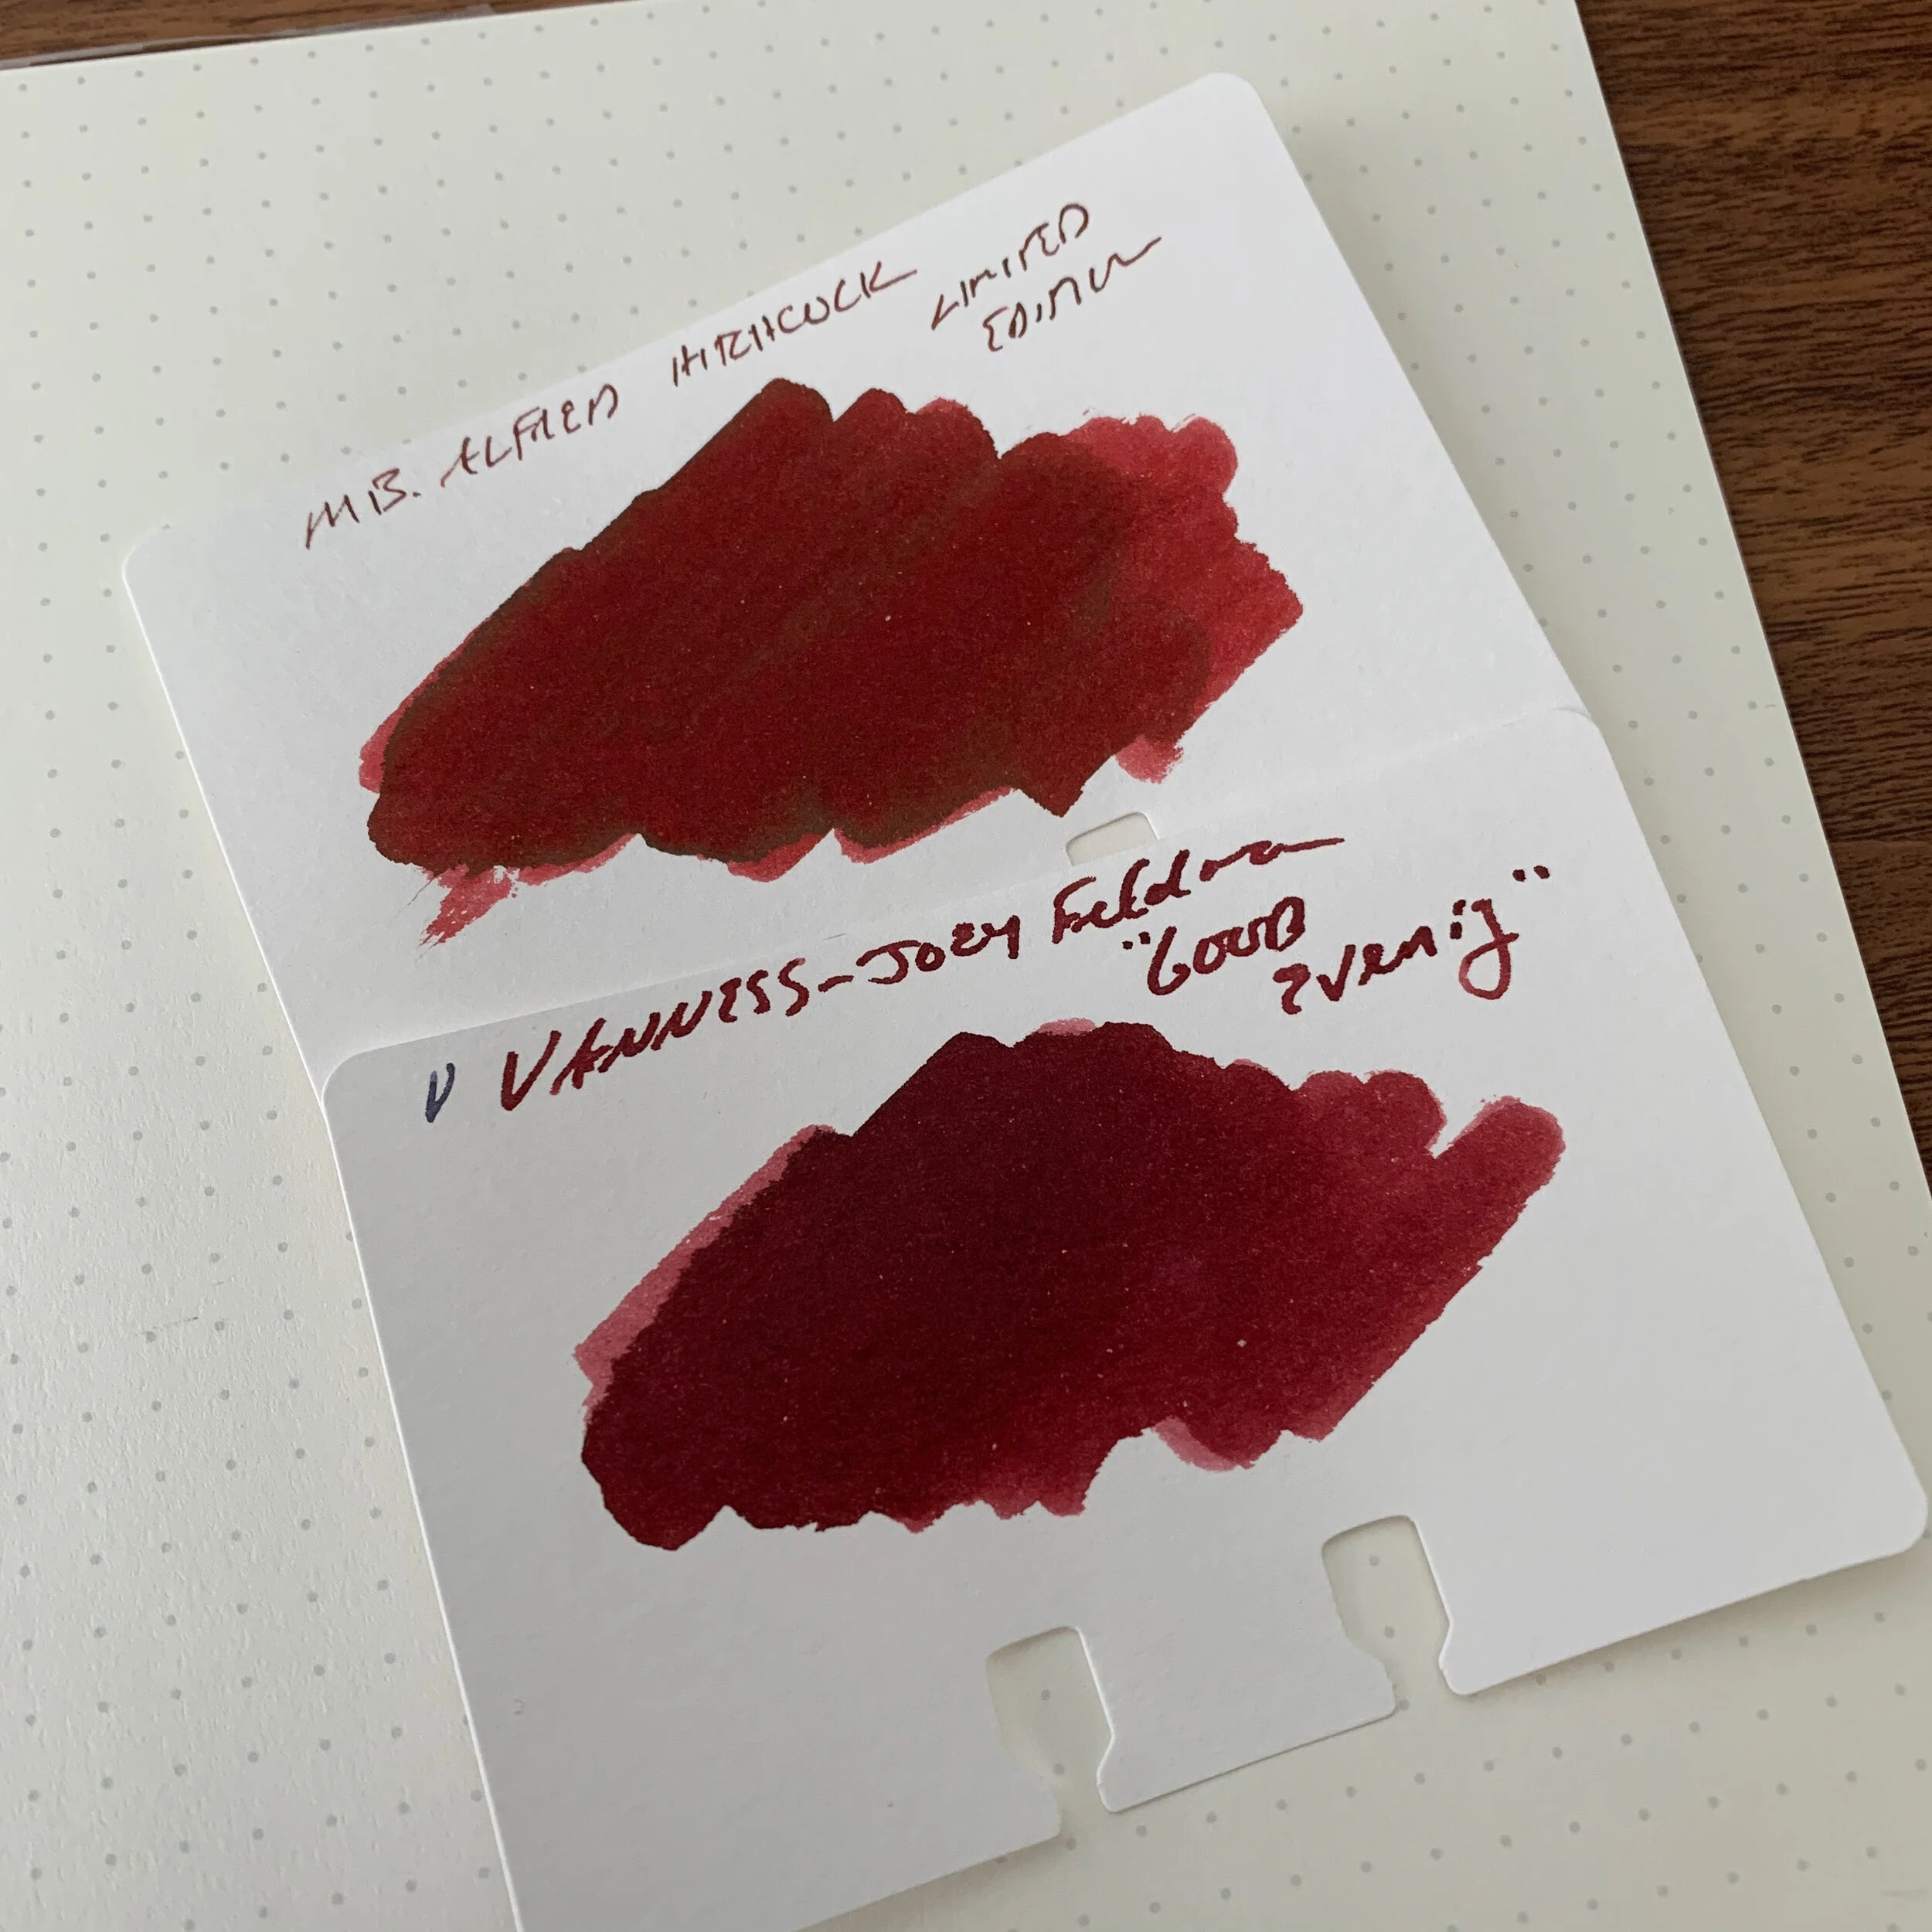 M.B. ALFRED HITCHCOCK LIMITED
EDITION
V VANNESS-JOEY Feldman
"GOOD
Evening"